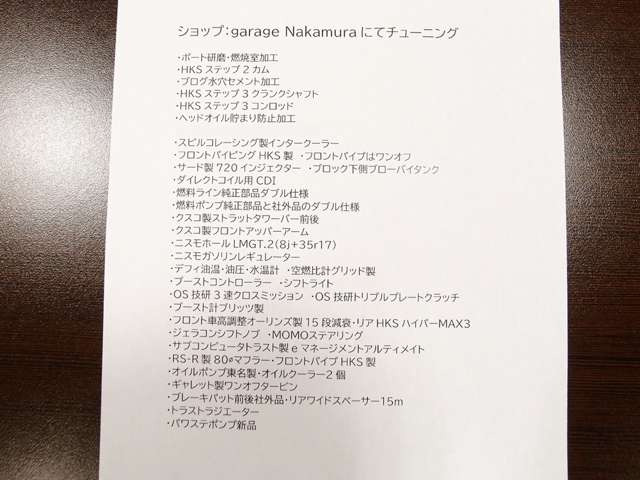 ショップ:garage Nakamuraにてチューニング
・ポート研磨・燃焼室加工
・HKSステップ2カム
・ブログ水穴セメント加工
・HKSステップ3クランクシャフト
・HKSステップ3コンロッド
・ヘッドオイル貯まり防止加工
・スピルコレーシング製インタークーラー
・フロントパイピングHKS製 ・フロントパイプはワンオフ
・サード製720インジェクター ・ブロック下側ブローバイタンク
・ダイレクトコイル用CDI
・燃料ライン純正部品ダブル仕様
・燃料ポンプ純正部品と社外品のダブル仕様
・クスコ製ストラットタワーバー前後
・クスコ製フロントアッパーアーム
・ニスモホールLMGT.2(8j+35r17)
・ニスモガソリンレギュレーター
・デフィ油温・油圧・水温計 ・空燃比計グリッド製
・ブーストコントローラー ・シフトライト
・OS技研3速クロスミッション ・OS技研トリプルプレートクラッチ
・ブースト計ブリッツ製
・フロント車高調整オーリンズ製15段減衰・リアHKSハイパーMAX3
・ジェラコンシフトノブ ・MOMOステアリング
・サブコンピュータトラスト製eマネージメントアルティメイト
・RS-R製80⌀マフラー・フロントパイプHKS製
・オイルポンプ東名製・オイルクーラー2個
・ギャレット製ワンオフタービン
・ブレーキパット前後社外品・リアワイドスペーサー15m
・トラストラジエーター
・パワステポンプ新品